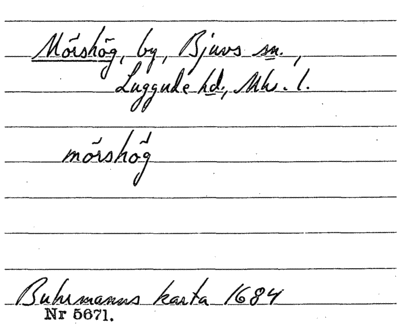 Mörshög, by, Bjuvs sn.,
Luggude hd, Mhs. l.
mörshög
Buhrmanns karta 1684
Nr 5671.